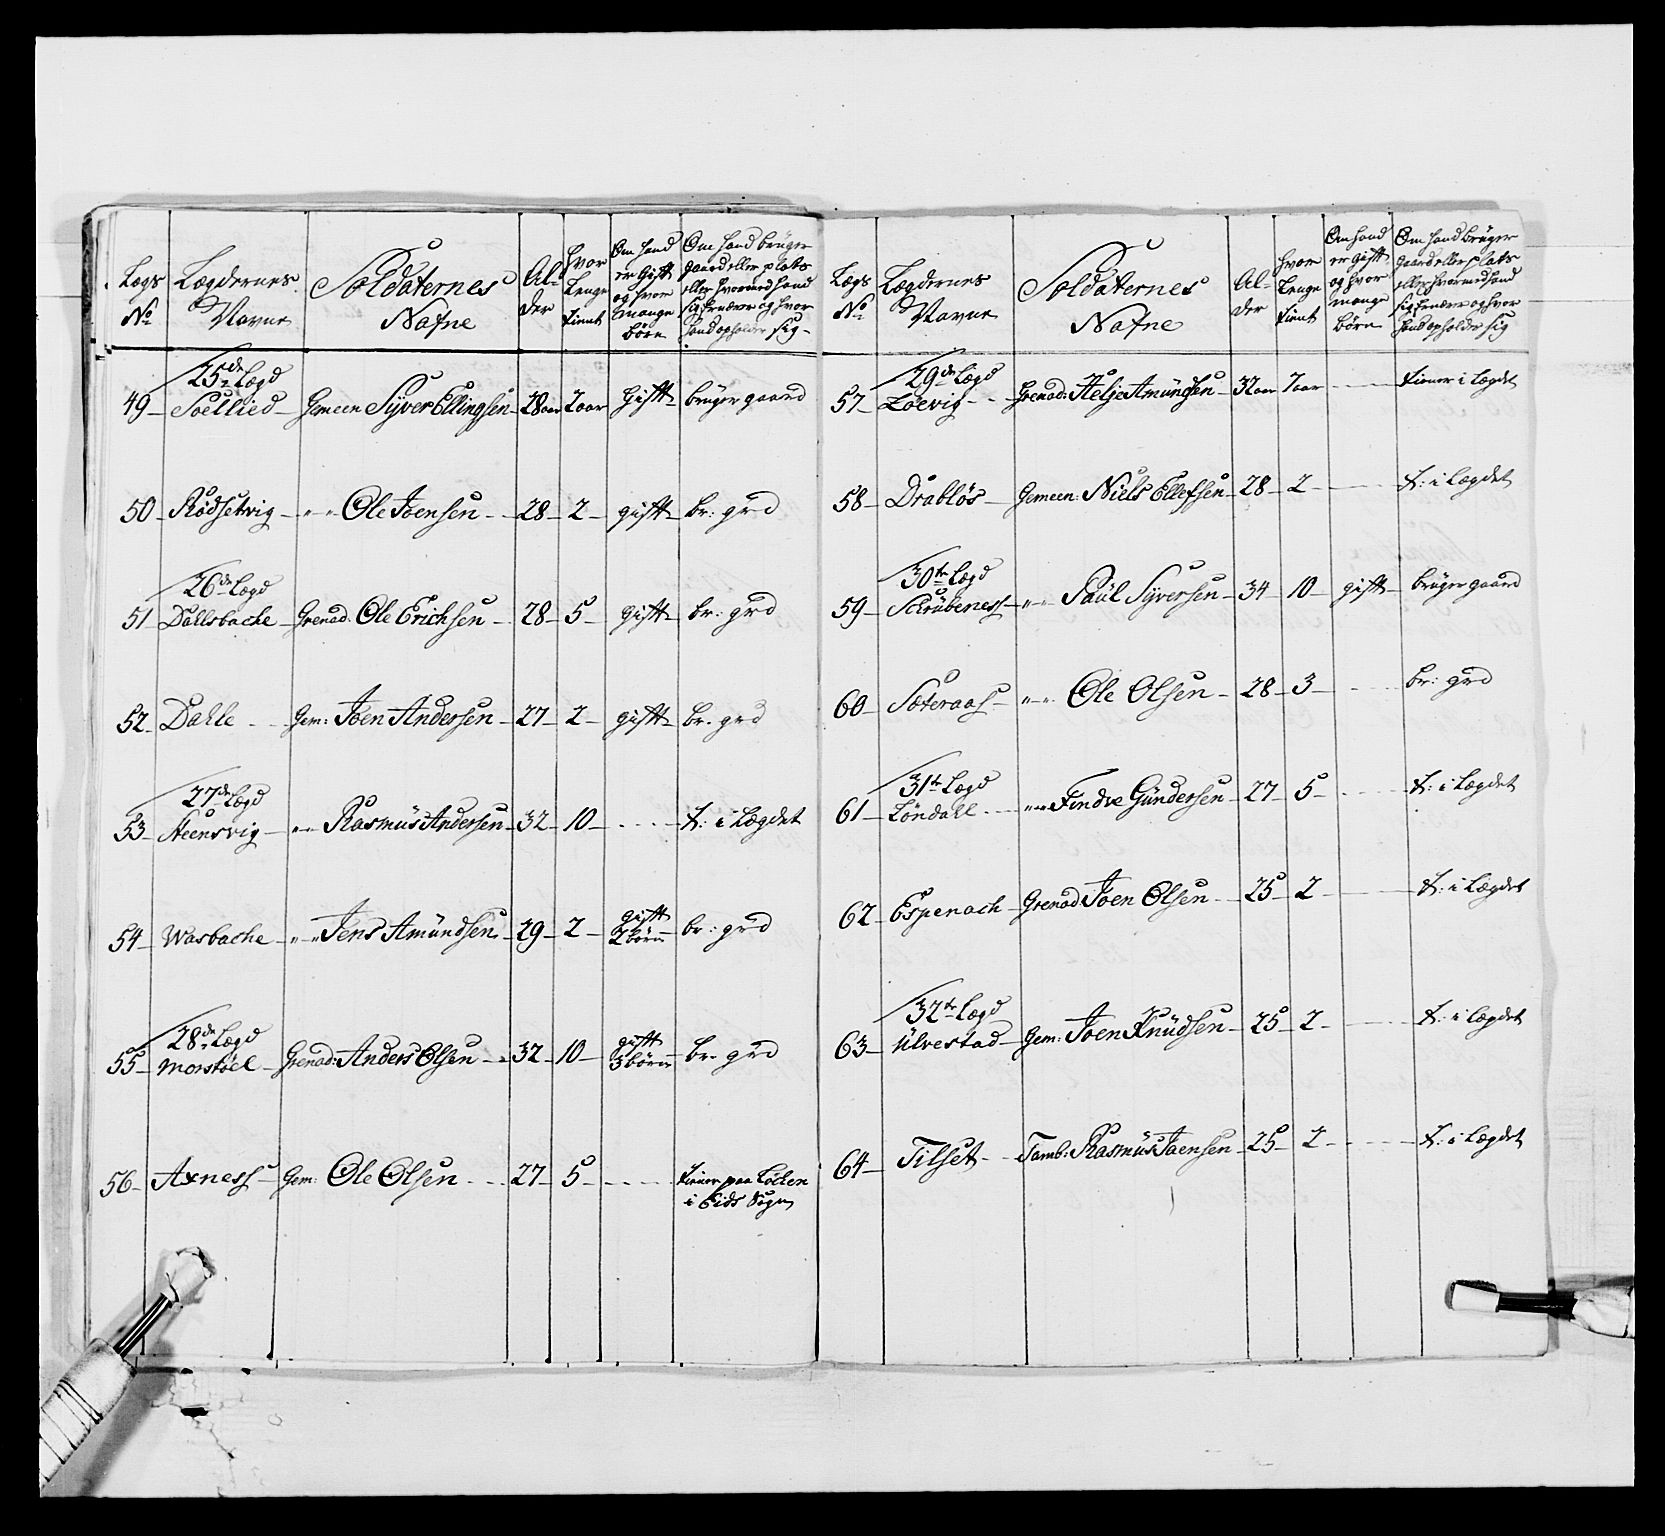 Legs No | Lægdernes Navne | Soldaternes Nafne | Al-der | hvor lenge tient | Om hand er gift og hvor mange børn | Om hand bruger gaard eller plats eller hvormed hand sig ernærer og hvor hand opholder sig
25de Lægd
49 - Soellied - Gemeen Syver Ellingsen - 28 aar - 2 aar - Gift - bruger gaard
50 - Rødsetvig - " " Ole Joensen - 28 - 2 - gift - br: grd
26de Lægd
51 - Dallsbache - Grenad: Ole Erichsen - 28 - 5 - gift - br: grd
52 - Dahle - Gem: Joen Andersen - 27 - 2 - gift - br. grd
27de Lægd
53 - Steensvig - " Rasmus Andersen - 32 - 10 - - - t: i Lægdet
54 - Wasbache - " " Jens Amundsen - 29 - 2 - gift 2 børn - br: grd
28de Lægd
55 - Morstøel - Grenad: Anders Olsen - 32 - 10 - gift 3 børn - br. grd
56 - Axness - Gem: Ole Olsen - 27 - 5 - - - tiener paa Løchen
i Eids Sogn
Legs No | Lægdernes Navne | Soldaternes Nafne | Al-der | hvor lenge tient | Om hand er gift og hvor mange børn | Om hand bruger gaard eller plats eller hvormed hand sig ernærer og hvor hand opholder sig
29de Lægd
57 - Loevig - Grenad: Helje Amundsen - 32 aar - 7 aar - - - tiener i Lægdet
58 - Drabløs - Gemeen: Niels Ellefsen - 28 - 2 - - - t: i Lægdet
30te Lægd
59 - Schrubeness - " " Paül Syversen - 34 - 10 - gift - bruger gaard
60 - Sæteraas - " " Ole Olsen - 28 - 3 - - - br: grd
31te Lægd
61 - Løndall - " " Findve Gundersen - 27 - 5 - - - t: i Lægdet
62 - Espenach - Grenad Joen Olsen - 25 - 2 - - - t: i Lægdet
32te Lægd
63 - Ulvestad - Gem: Joen Knudsen - 25 - 2 - - - t: i Lægdet
64 - Tilset - Tamb: Rasmus Jaensen - 25 - 2 - - - t: i Lægdet